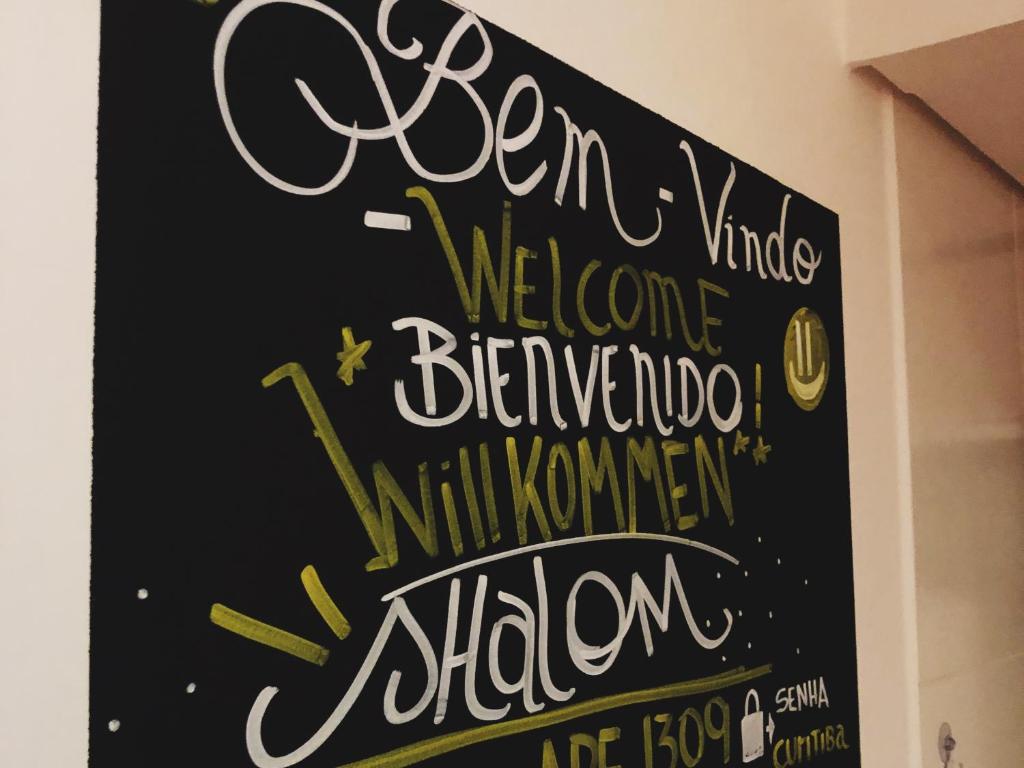 Bem-Vindo
- WELCOME
BIENVENIDO!
WillKOMMEN
SHalOM
APE 1309
SENHA
CURITIBa